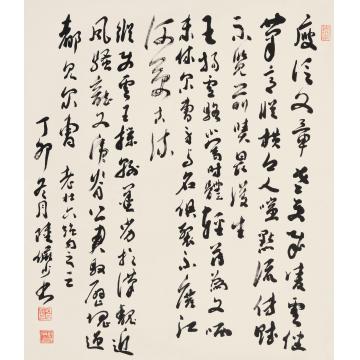 庾信文章老更成凌雲健
筆意縱横今人嗤點流傳賦
不覺前賢畏後生
王楊盧駱當時體輕薄為文哂
未休爾曹身與名俱滅不廢江
河萬古流
縱使盧王操翰墨劣於漢魏近
風騷龍文虎脊皆君馭歷塊過
都見爾曹 老杜六絶句之三
丁卯冬月陸儼少書